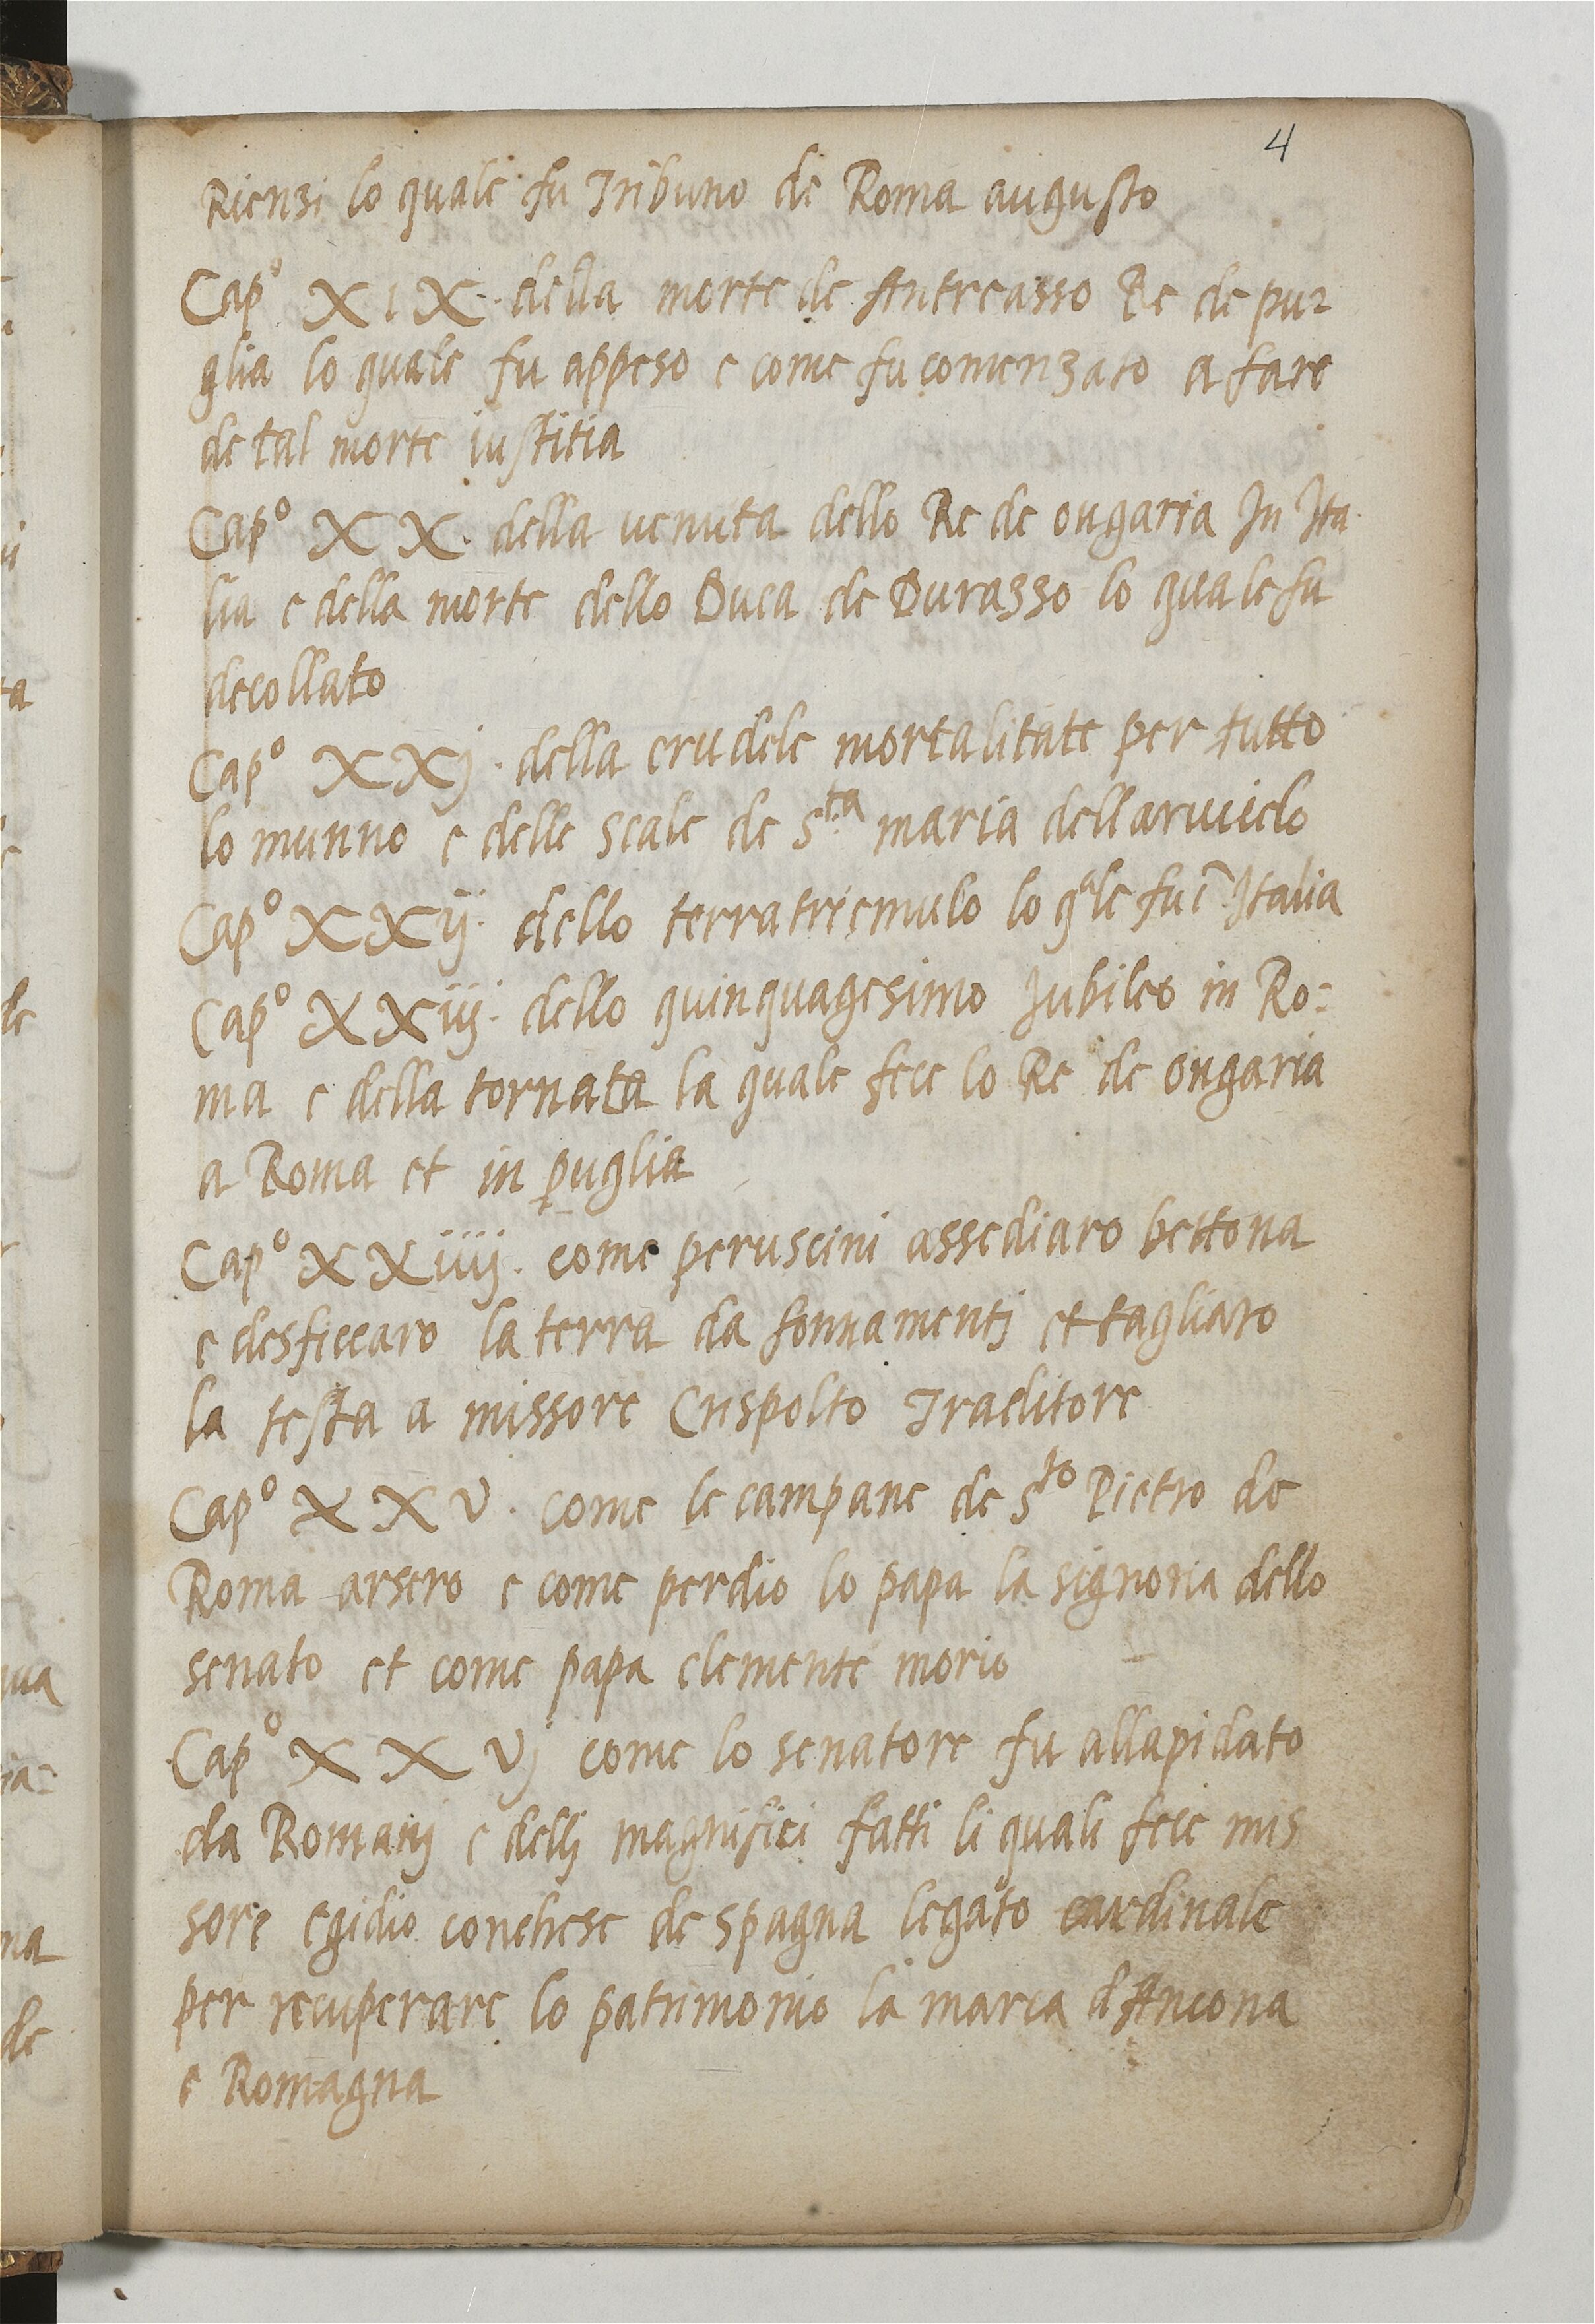 4
Rienzi lo quale fu Tribuno de Roma augusto
Cap.º XIX. della morte de Antreasso Re de pu-
glia lo quale fu appeso e come fu comenzato a fare
de tal morte iustitia
Capº XX. della venuta dello Re de ongaria In Ita
lia e della morte dello Duca de Durazzo lo quale fu
decollato
Capº XXj. della crudele mortalitate per tutto
lo munno e delle scale de sta maria dellaruuielo
Capº XXij. dello terratriemulo lo qale fu ī Italia
Capº XXiij. dello quinquagesimo Jubileo in Ro=
ma e della tornata la quale fece lo Re de ongaria
a Roma et in puglia
Capº XXiiij. come peruscini assediaro bettona
e desficcaro la terra da fonnamentj et tagliaro
la testa a missore Crispolto Traditore
Capº XXV. come le campane de sto Pietro de
Roma arsero e come perdio lo papa la signoria dello
senato et come papa clemente morio
Capº XXVj come lo senatore fu allapidato
da Romanj e dellj magnifici fatti li quali fece mis
sore egidio conchese de spagna legato cardinale
per recuperare lo patrimonio la marca d Ancona
e Romagna